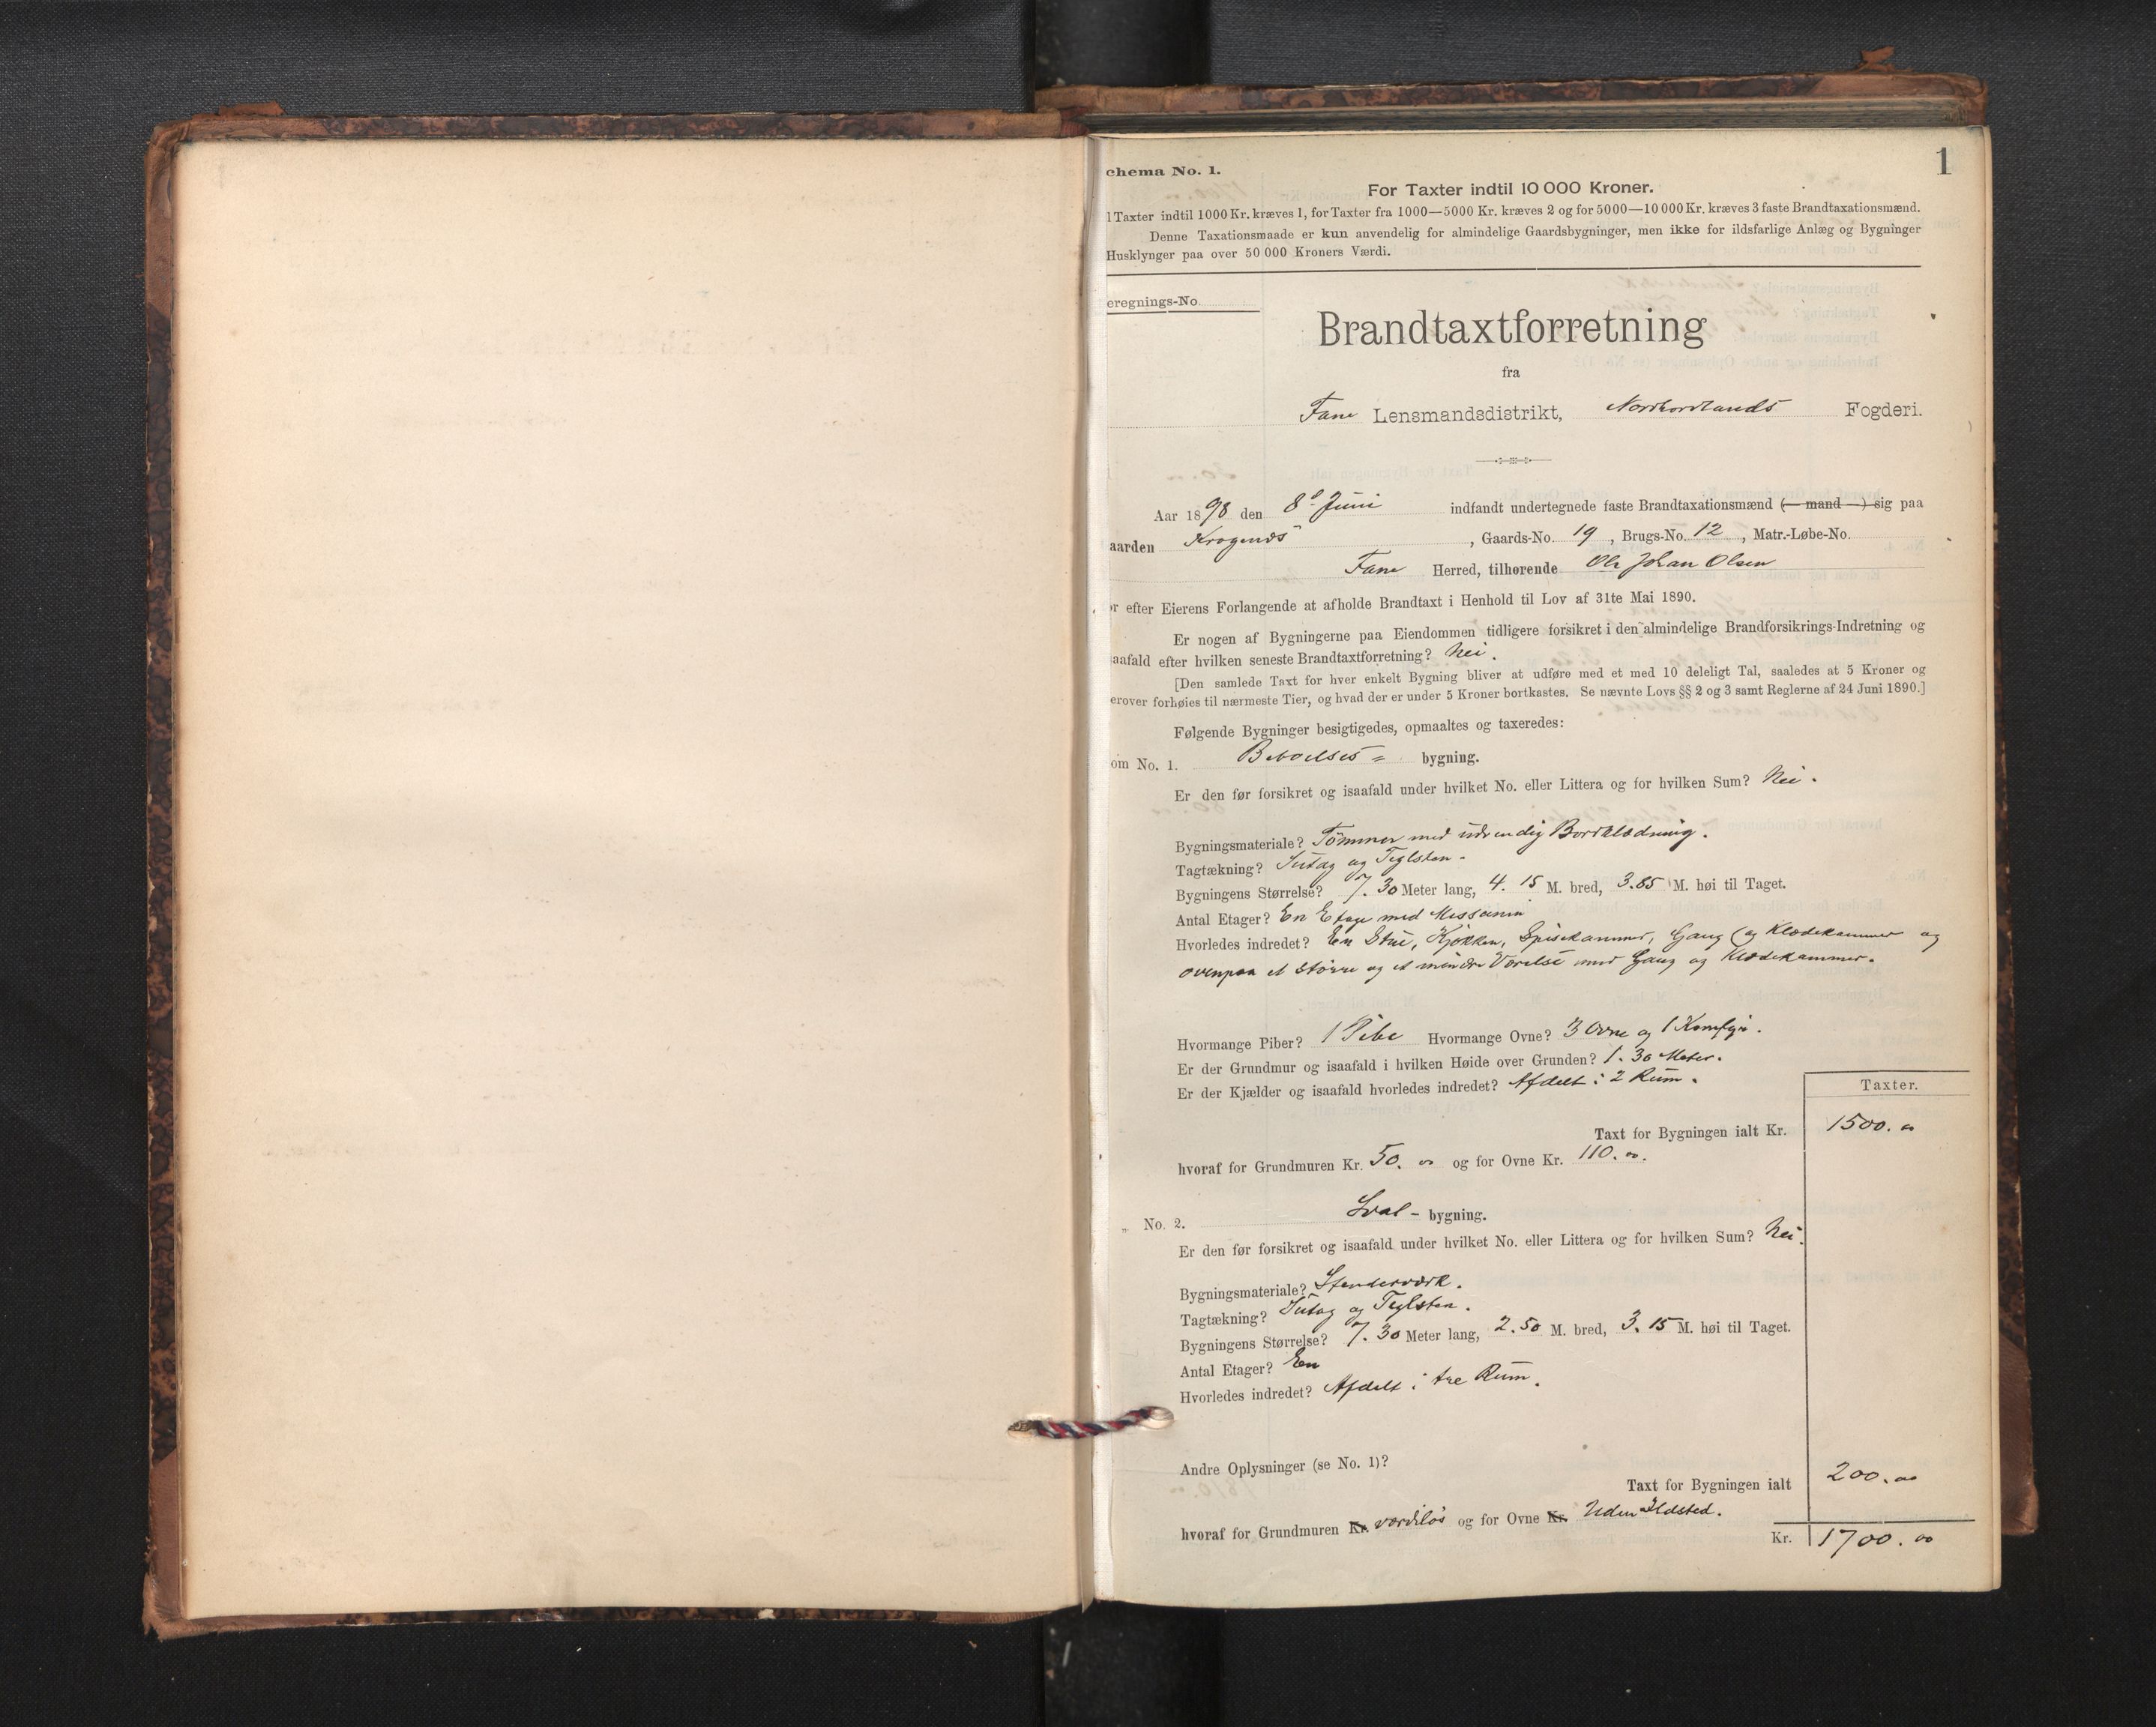 1
chema No. 1.
For Taxter indtil 10 000 Kroner.
l Taxter indtil 1000 Kr. kræves 1, for Taxter fra 1000—5000 Kr. kræves 2 og for 5000—10 000 Kr. kræves 3 faste Brandtaxationsmænd.
Denne Taxationsmaade er kun anvendelig for almindelige Gaardsbygninger, men ikke for ildsfarlige Anlæg og Bygninger
Husklynger paa over 50 000 Kroners Værdi.
eregnings-No.
Brandtaxtforretning
fra
Fane Lensmandsdistrikt, Nordhordlands Fogderi.
Aar 1898 den 8d Juni indfandt undertegnede faste Brandtaxationsmænd (— mand —) sig paa
aarden Krogenæs, Gaards-No. 19, Brugs-No. 12, Matr.-Løbe-No.
Fane Herred, tilhørende Ole Johan Olsen
or efter Eierens Forlangende at afholde Brandtaxt i Henhold til Lov af 31te Mai 1890.
Er nogen af Bygningerne paa Eiendommen tidligere forsikret i den almindelige Brandforsikrings-Indretning og
aafald efter hvilken seneste Brandtaxtforretning? Nei.
[Den samlede Taxt for hver enkelt Bygning bliver at udføre med et med 10 deleligt Tal, saaledes at 5 Kroner og
erover forhøies til nærmeste Tier, og hvad der er under 5 Kroner bortkastes. Se nævnte Lovs §§ 2 og 3 samt Reglerne af 24 Juni 1890.]
Følgende Bygninger besigtigedes, opmaaltes og taxeredes:
om No. 1. Beboelses= bygning.
Er den før forsikret og isaafald under hvilket No. eller Littera og for hvilken Sum? Nei.
Bygningsmateriale? Tømmer med udvendig Bordklædning.
Tagtækning? Sutag og Teglsten.
Bygningens Størrelse? 7.30 Meter lang, 4.15 M. bred, 3.85 M. høi til Taget.
Antal Etager? En Etage med Messanin
Hvorledes indredet? En Stue, Kjøkken, Spisekammer, Gang og Klædekammer og
ovenpaa et større og et mindre Værelse med Gang og Klædekammer.
Hvormange Piber? 1 Pibe Hvormange Ovne? 3 Ovne og 1 Komfyr.
Er der Grundmur og isaafald i hvilken Høide over Grunden? 1.30 Meter.
Er der Kjælder og isaafald hvorledes indredet? Afdelt i 2 Rum.
Taxter.
Taxt for Bygningen ialt Kr. 1500.00
hvoraf for Grundmuren Kr. 50.00 og for Ovne Kr. 110.00.
„ No. 2. Sval- bygning.
Er den før forsikret og isaafald under hvilket No. eller Littera og for hvilken Sum? Nei.
Bygningsmateriale? Stenderværk.
Tagtækning? Sutag og Teglsten.
Bygningens Størrelse? 7.30 Meter lang, 2.50 M. bred, 3.15 M. høi til Taget.
Antal Etager? En
Hvorledes indredet? Afdelt i tre Rum.
Andre Oplysninger (se No. 1)?
Taxt for Bygningen ialt 200.00
hvoraf for Grundmuren Kr. værdiløs og for Ovne Kr. Uden Ildsted.
Kr. 1700.00